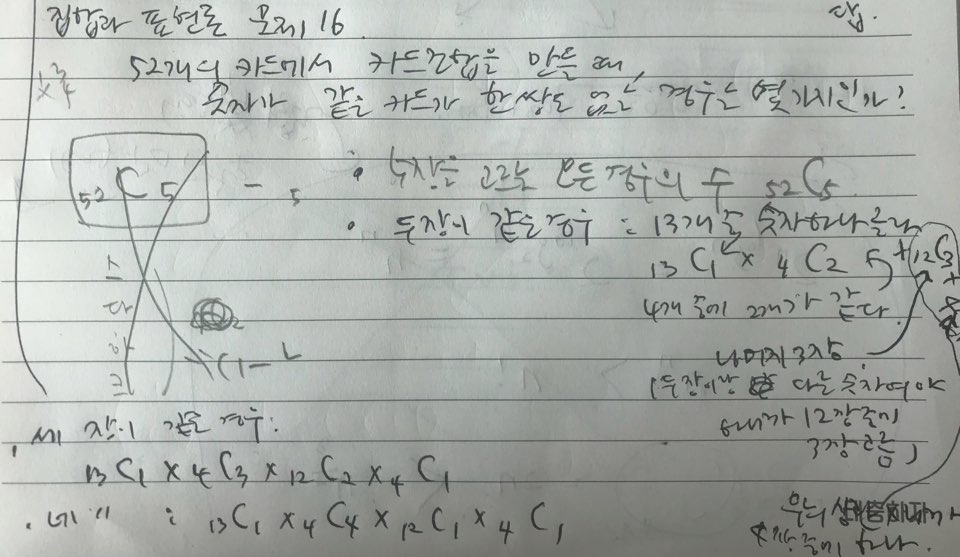 집합과 표현론 문제 16
답.
52개의 카드에서 카드조합을 만들 때,
숫자가 같은 카드가 한쌍도 없는 경우는 몇가지인가?
52C5 - 5
• 5장을 고르는 모든 경우의 수 52C5
• 두장이 같은 경우 : 13개중 숫자하나 골라
13C1 × 4C2 × 12C3 ×
4개 중에 2개가 같다.
나머지 3장
(두장이랑 다른 숫자여야
하니까 12장중에
3장 고름)
. 세 장이 같은 경우:
13C1 × 4C3 × 12C2 × 4C1
. 네 〃 : 13C1 × 4C4 × 12C1 × 4C1
4개 중에 하나.